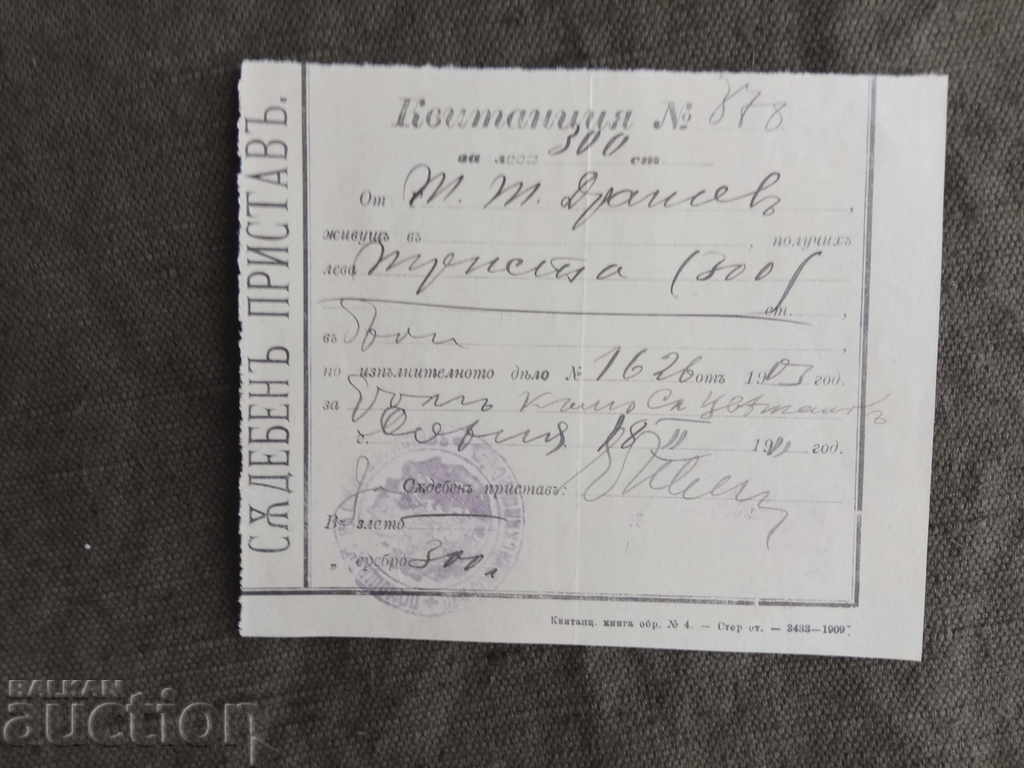 СѪДЕБЕНЪ ПРИСТАВЪ.
Квитанция № 878
за лева 300 ст
От Т. Т. Драгиевъ ,
живущъ въ , получихъ
лева триста (300)
ст. ,
въ ,
по изпълнителното дѣло № 1626 отъ 1903 год.
за
г. София 18 II 19 год.
Сѫдебенъ приставъ:
Въ злато
„ сребро 300 л
Квитанц. книга обр. № 4. — Стер от. — 3433—1909
BALKAN
auction